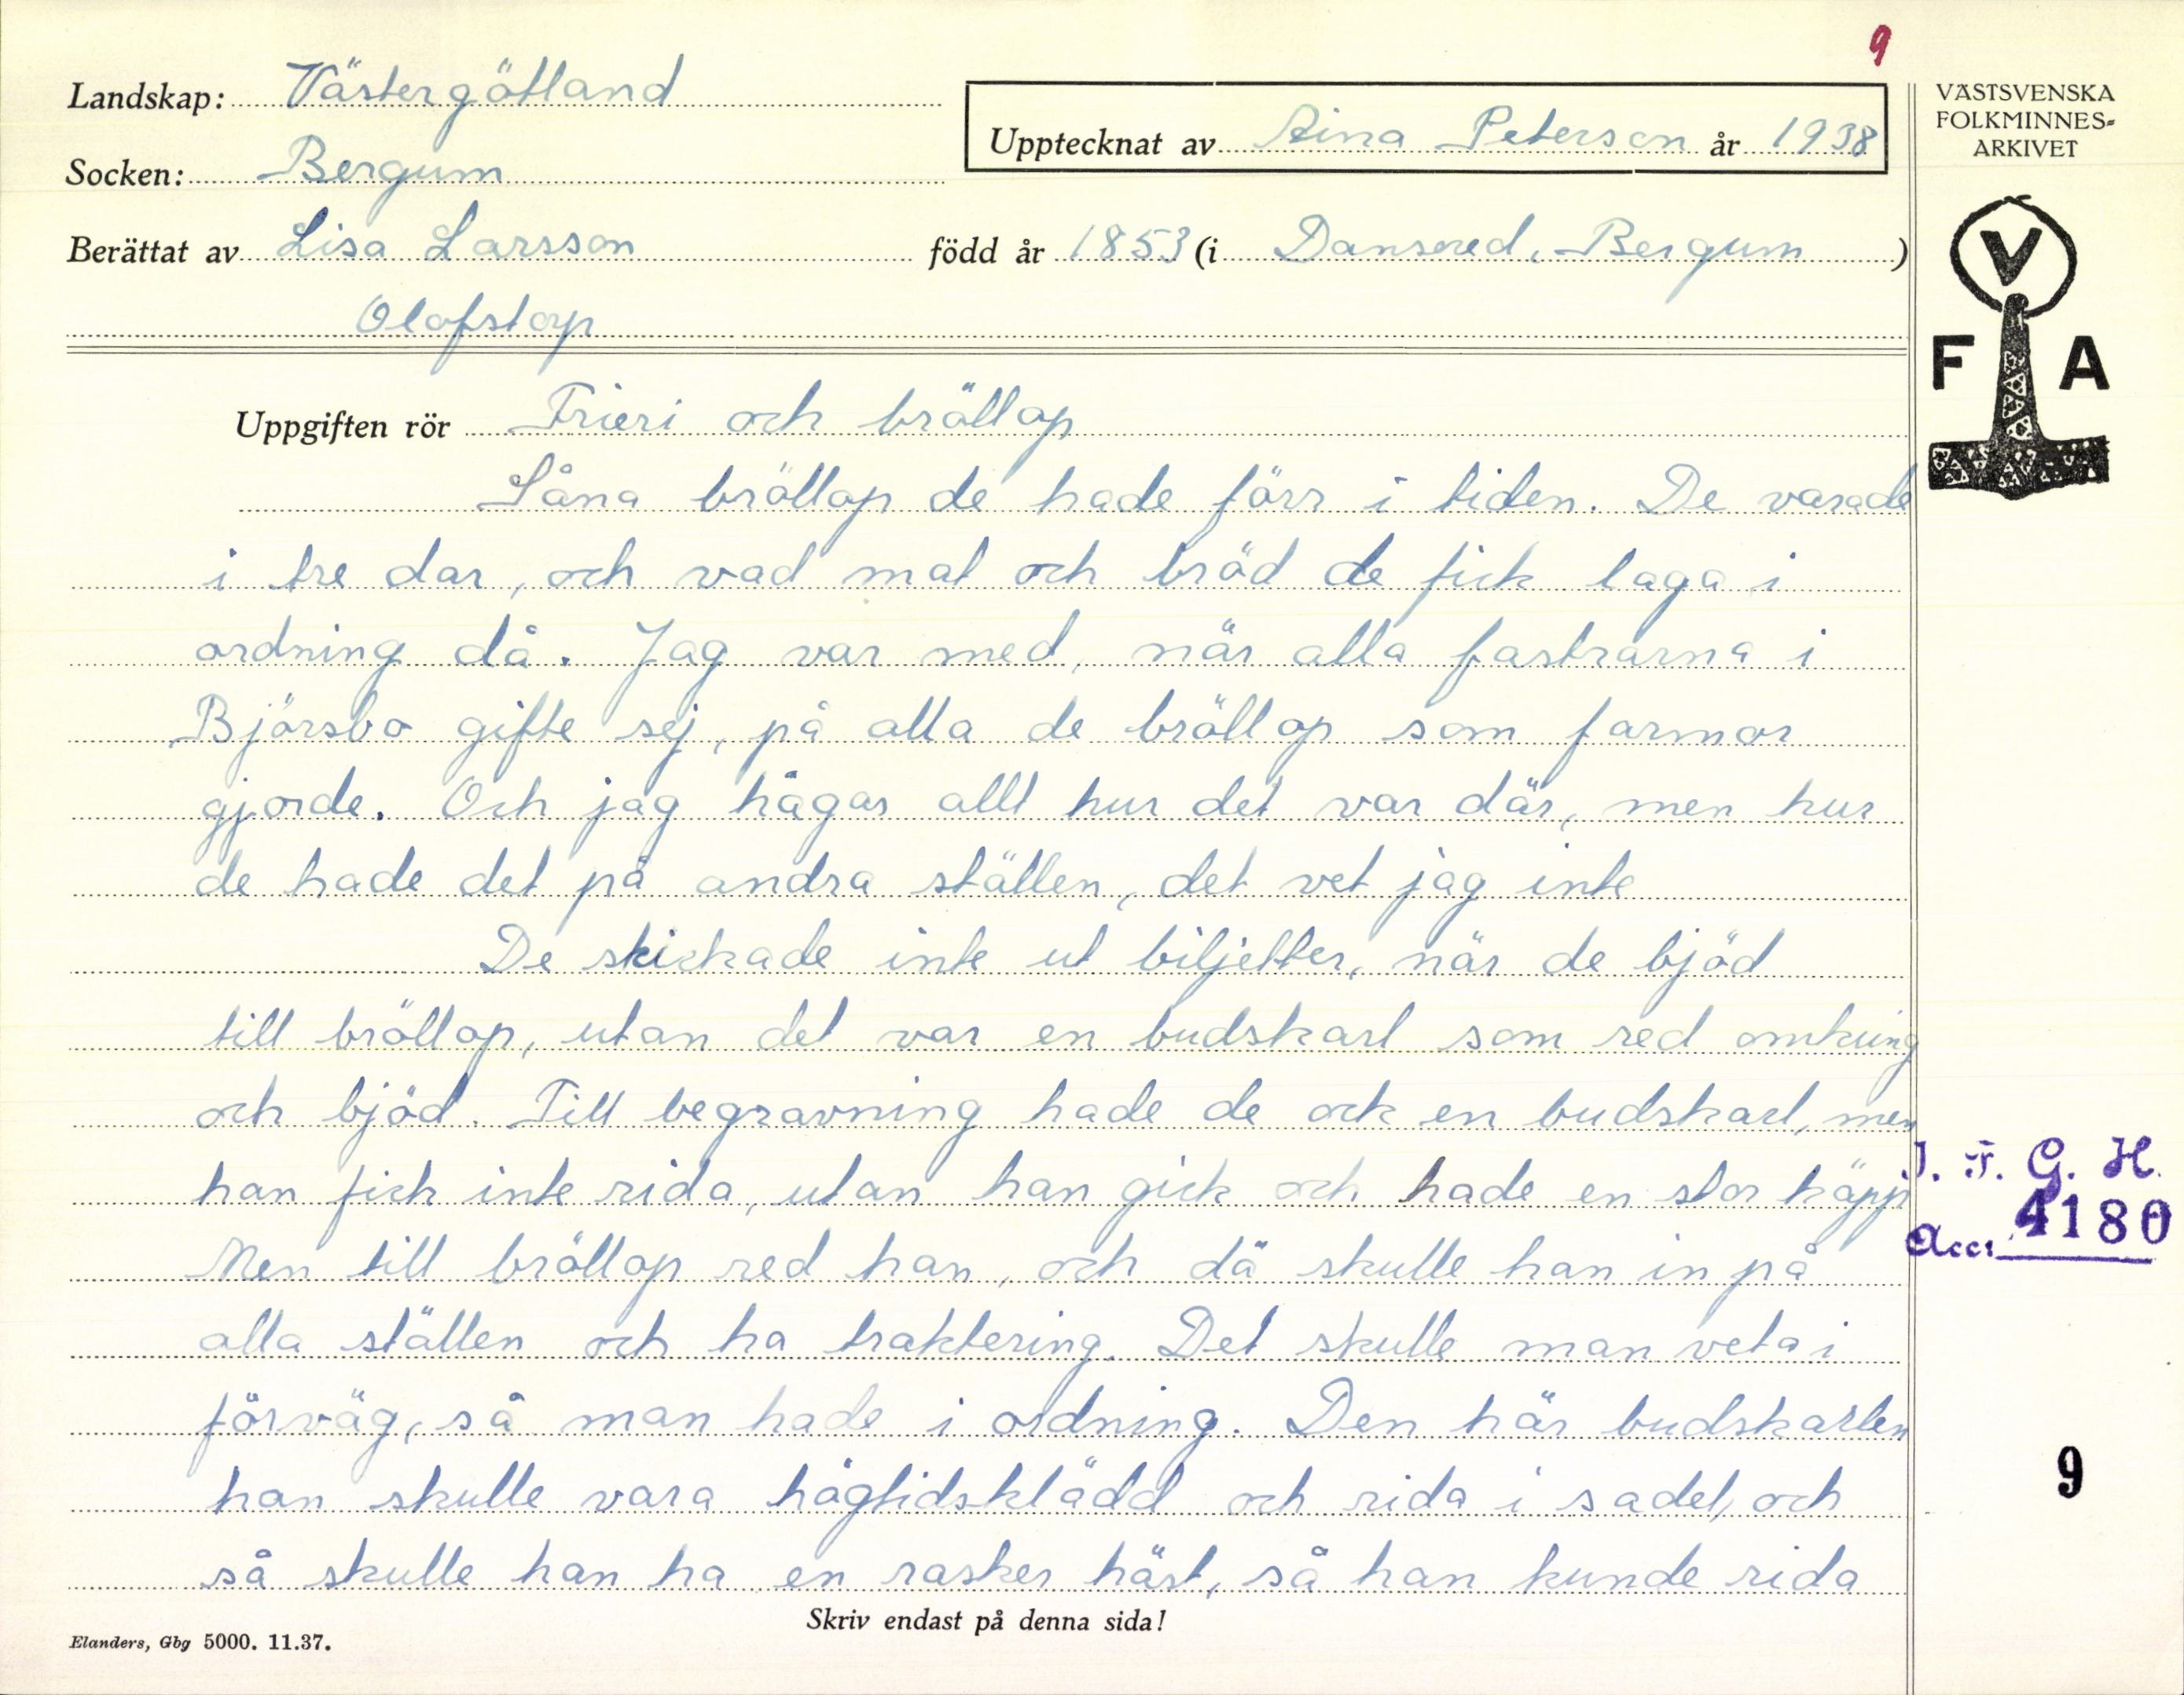 9
Landskap: Västergötland
Upptecknat av Aina Peterson år 1938
VÄSTSVENSKA
FOLKMINNES-
ARKIVET
Socken: Bergum
Berättat av Lisa Larsson född år 1853 (i Dansered, Bergum)
Olofstorp
V
F A
Uppgiften rör Frieri och bröllop
Såna bröllop de hade förr i tiden. De varade
i tre dar, och vad mat och bröd de fick laga i
ordning då. Jag var med, när alla fastrarna i
Björsbo gifte sej, på alla de bröllop som farmor
gjorde. Och jag hågas allt hur det var där, men hur
de hade det på andra ställen, det vet jag inte
De skickade inte ut biljetter, när de bjöd
till bröllop, utan det var en budskarl som red omkring
och bjöd. Till begravning hade de ock en budskarl, men
han fick inte rida, utan han gick och hade en stor käpp
Men till bröllop red han, och då skulle han in på
alla ställen och ha traktering. Det skulle man veta i
förväg, så man hade i ordning. Den här budskarlen
han skulle vara högtidsklädd och rida i sadel, och
så skulle han ha en rasker häst, så han kunde rida
I. F. G. H.
Acc: 4180
9
Skriv endast på denna sida!
Elanders, Gbg 5000. 11.37.